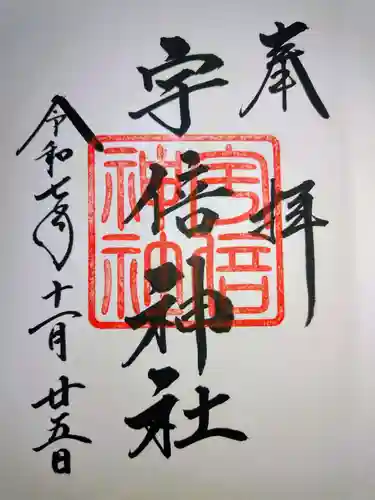 奉拝
宇倍神社
令和七年十一月廿五日
宇倍
神社